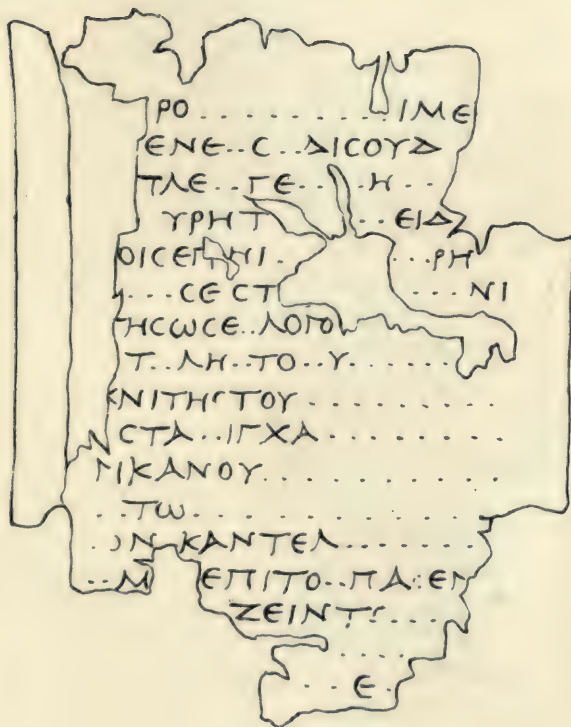 ΡΟ . . . . . . . . . . . ΙΜΕ
ΕΝΕ..Ϲ..ΔΙϹΟΥΔ
ΤΛΕ...ΓΕ....Η..
ΥΡΗΤ ..ΕΙΔ
ΟΙϹΕΠ ΗΙ. ...ΡΗ
...ϹΕϹΤ ....ΝΙ
ΤΗϹΩϹΕ..ΛΟΓΟ
Τ..ΛΗ..ΤΟ..Υ......
ΚΝΙΤΗΓΤΟΥ.........
ϹΤΑ..ΙΓΧΑ.........
ΙΚΑΝΟΥ...........
..ΤΩ..............
.ΟΝ ΚΑΝΤΕΛ......
..Μ ΕΠΙΤΟ..ΠΑ.ΕΓ
ΖΕΙΝΤΓ....
.....
..Ε.